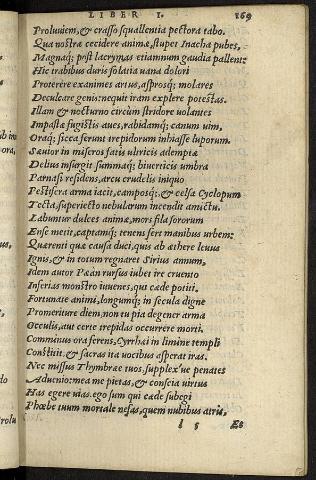 LIBER I. 169
Proluuiem, & crasso squallentia pectora tabo.
Qua nostræ cecidere animæ, stupet Inacha pubes,
Magnaq; post lacrymas etiamnum gaudia pallent:
Hic trabibus duris solatia uana dolori
Proterere exanimes artus, asprosq; molares
Deculcare genis: nequit iram explere potestas.
Illam & nocturno circùm stridore uolantes
Impastæ fugistis aues, rabidamq; canum uim,
Oraq; sicca ferunt trepidorum inhiasse luporum.
Sæuior in miseros fatis ultricis ademptæ
Delius insurgit summaq; biuerticis umbra
Parnasi residens, arcu crudelis iniquo
Pestifera arma iacit, camposq;, & celsa Cyclopum
Tecta, superiecto nebularum incendit amictu.
Labuntur dulces animæ, mors fila sororum
Ense metit, captamq; tenens fert manibus urbem:
Quærenti quæ causa duci, quis ab æthere leuus
Ignis, & in totum regnaret Sirius annum,
Idem autor Pæan rursus iubet ire cruento
Inferias monstro iuuenes, qui cæde potiti.
Fortunate animi, longumq; in secula digne
Promeriture diem, non tu pia degener arma
Occulis, aut certe trepidas occurrere morti.
Comminus ora ferens, Cyrrhæi in limine templi
Constitit, & sacras ita uocibus asperat iras.
Nec missus Thymbræe tuos, supplex'ue penates
Aduenio: mea me pietas, & conscia uirtus
Has egere uias. ego sum qui cæde subegi
Phœbe tuum mortale nefas, quem nubibus atris,
l 5 Et